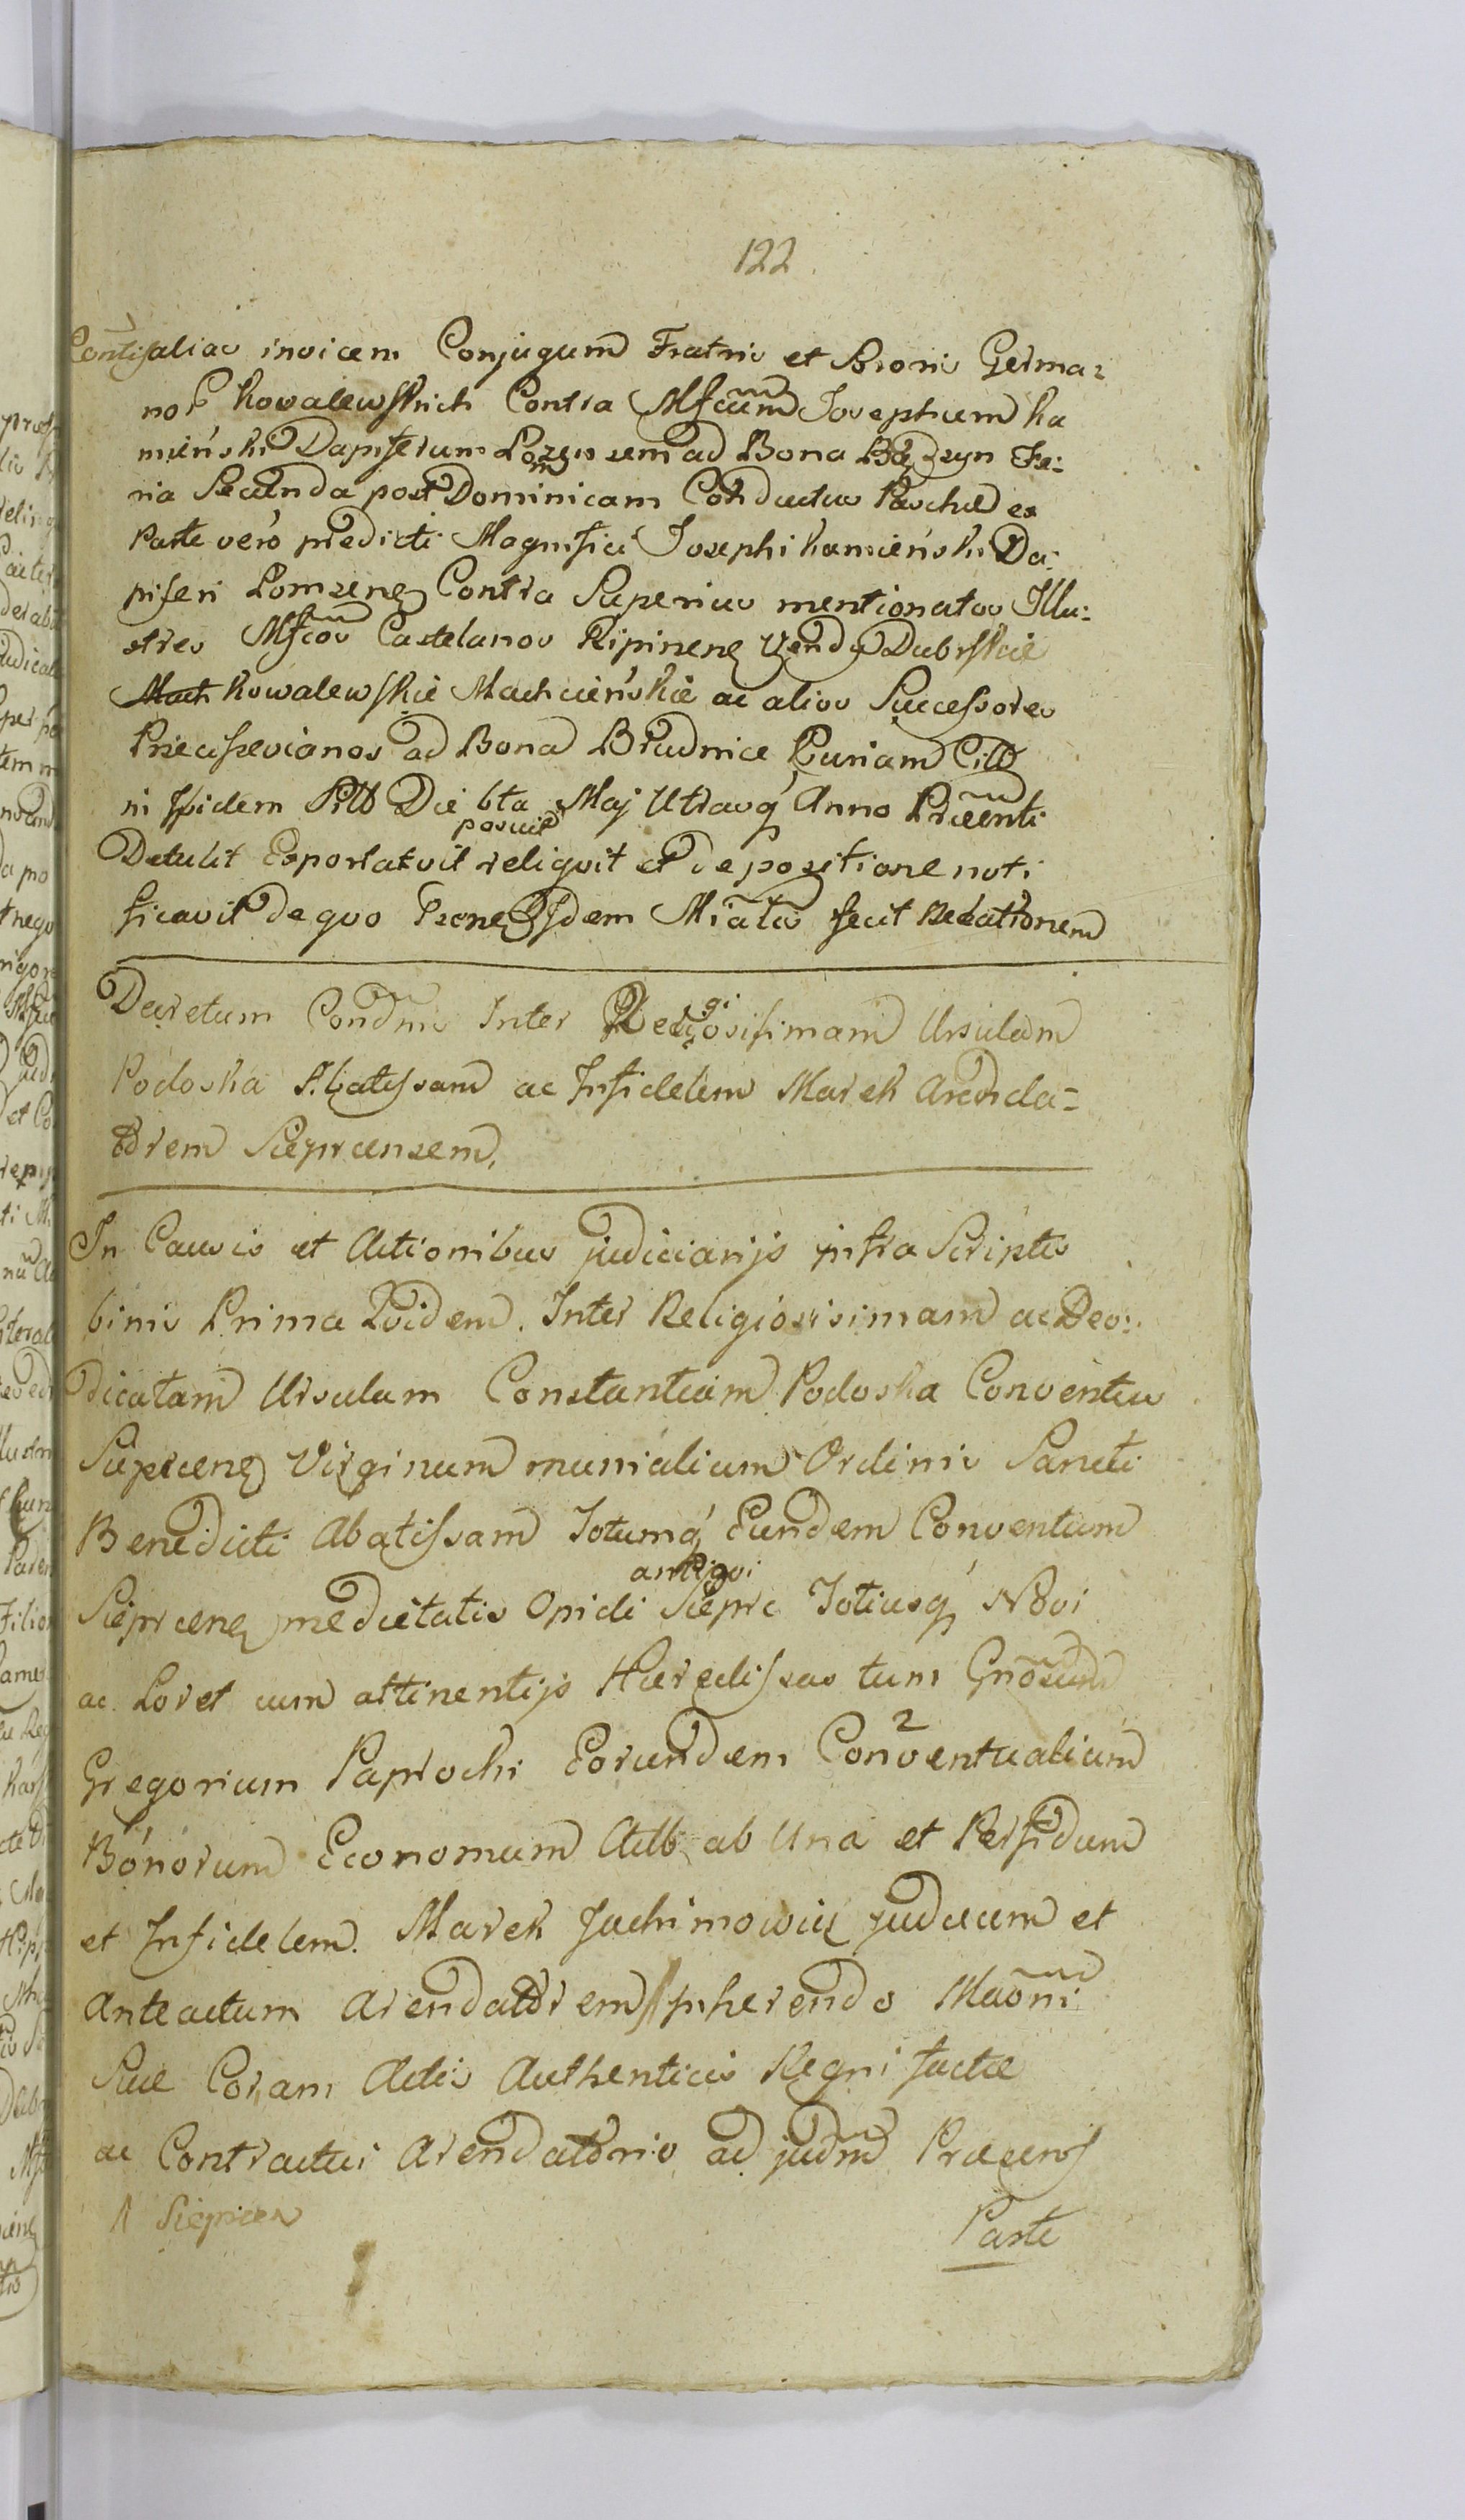 122
Conthsaliae invicem Conjugum Fratris et Sororis Germa:
nor Kowalewskich Contra Mfcum Josephum Ka
mieński Dapiferum Lomzensem ad Bona Fe:
ria Secunda post Dominicam Conductus Paschæ ex
Parte vero predicti Magnifici Josephi Kamieński Da:
piferi Lomzens Contra Superius mentionatos Illu:
stres Mfcos Castelanos Ripinens Dubrskie
Mach Kowalewskie Machcieńskie ac alios Successores
Prieciszevianos ad Bona Brudnice Curiam Cillb
ni ibidem Pttb Die 6ta Maj Utrasq Anno Præsenti
posuit
Detulit Exportavit reliquit et depositione noti
ficavit de quo Prones Idem Mialis fecit Relationem
Decretum Condnis Inter Religiosissimam Ursulam
Podoska Abatissam ac Infidelem Marek Arenda=
torem Sieprcensem.
In Causis et Actionibus judiciarijs infra Scriptis
binis Prima Quidem. Inter Religiosissimam ac Deo:
dicatam Ursulam Constantiam Podoska Conventus
Sieprcens Virginum monialium Ordinis Sancti
Benedicti Abatissam Totumq Eundem Conventum
antiqui
Sieprcens medietatis Opidi Sieprc Totiusq Novi
ac Loret cum attinentijs Hæredissas tum Gnosum
Gregorium Paprocki Eorundem Conventualium
Bonorum Economum Actb ab Una et Perfidum
et Infidelem. Marek Jachimowicz judæum et
Anteactum Arendatorem inhærendo Maoni
Suæ Coram Actis Authenticis Regni factæ
ac Contractui Arendatorio ad judm Præsens
Sieprcen
Parte